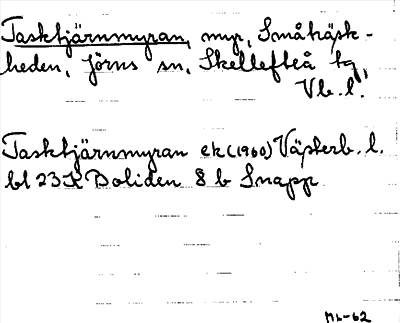 Tasktjärnmyran, myr, Småträsk-
heden, Jörns sn, Skellefteå tg,
Vb. l.
Tasktjärnmyran ek (1960) Västerb. l.
bl 23K Boliden 8 b Snapp
ML-62